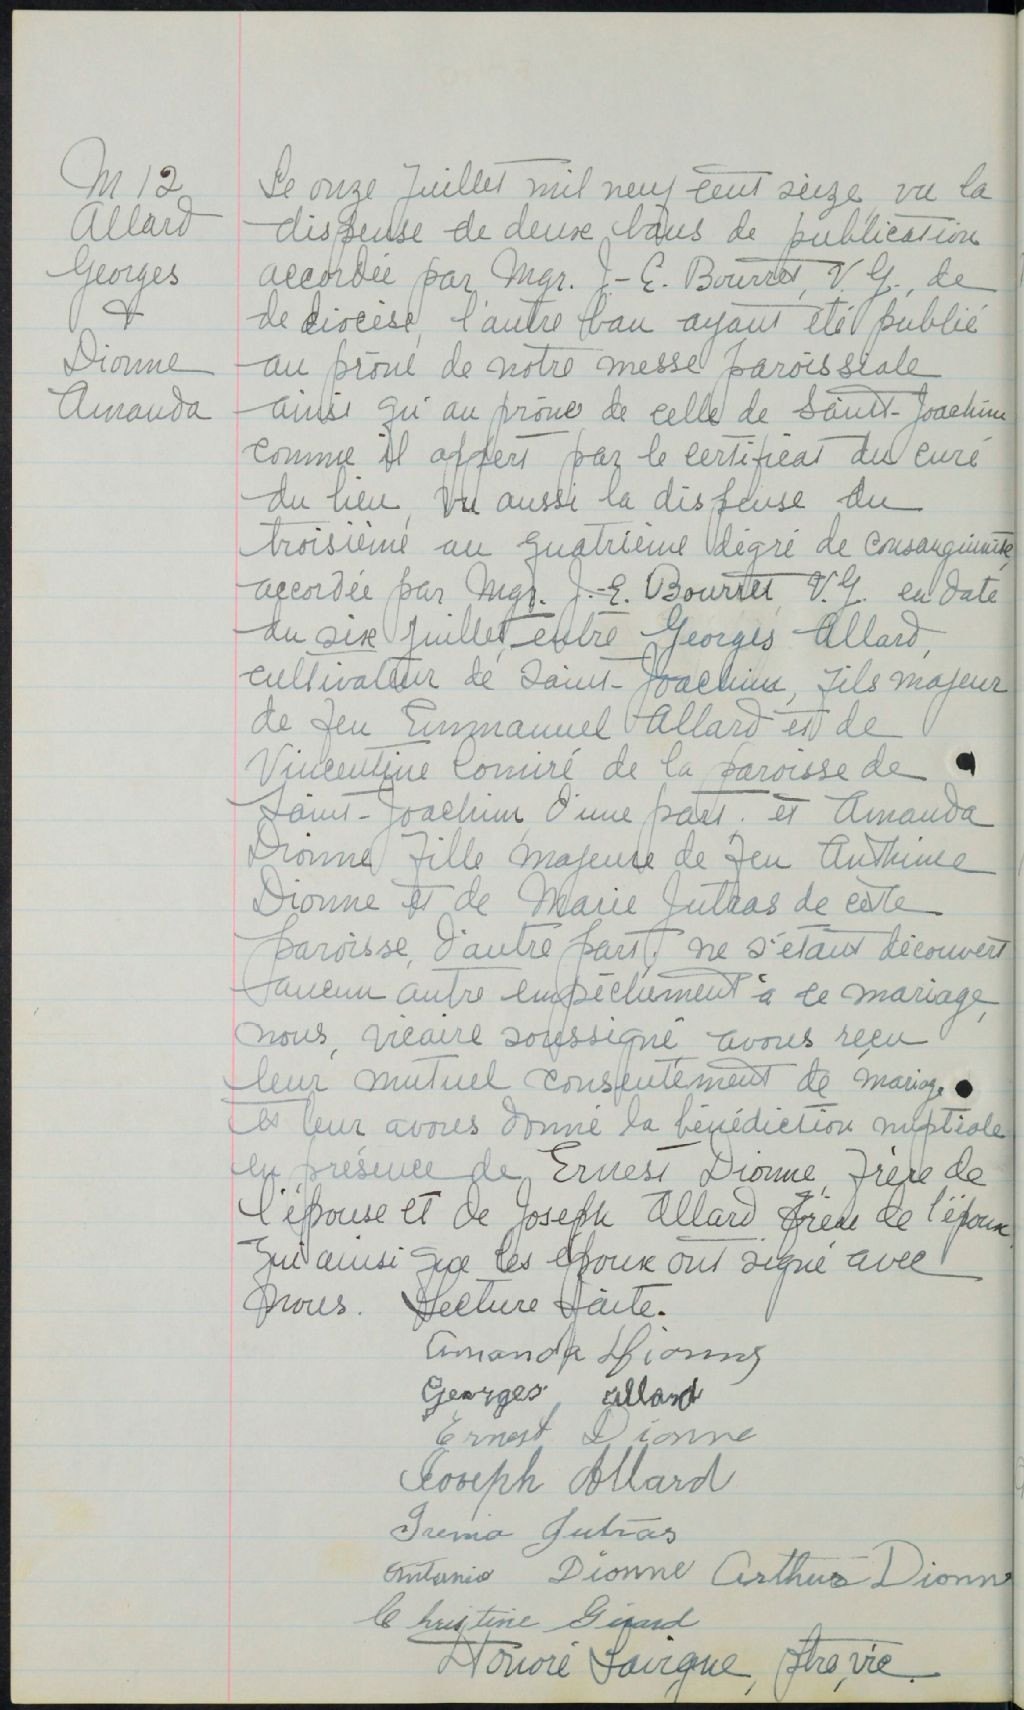 M 12
Allard
Georges
&
Dionne
Amanda
Le onze Juillet mil neuf cent seize, vu la
dispense de deux bans de publication
accordée par Mgr. J.-E. Bourret, V. G., de
de diocèse, l'autre ban ayant été publié
au prône de notre messe paroissiale
ainsi qu'au prône de celle de Saint-Joachim
comme il appert par le certificat du curé
du lieu, Vu aussi la dispense du
troisième au quatrième dégré de consanguinité,
accordée par Mgr. J.-E. Bourret V. G. en date
du six Juillet, entre Georges Allard,
cultivateur de Saint-Joachim, fils majeur
de feu Emmanuel Allard et de
Vincentine Comiré de la paroisse de
Saint-Joachim, d'une part. et Amanda
Dionne fille majeure de feu Anthime
Dionne et de Marie Jutras de cette
paroisse, d'autre part, ne s'étant découvert
aucun autre empêchement à ce mariage,
nous, vicaire soussigné avons reçu
leur mutuel consentement de mariage
et leur avons donné la bénédiction nuptiale
en présence de Ernest Dionne, frère de
l'épouse et de Joseph Allard frère de l'époux
qui ainsi que les époux ont signé avec
nous. Lecture faite.
Amanda Dionne
Georges Allard
Ernest Dionne
Joseph Allard
Jutras
Antonio Dionne Arthur Dionne
Christine Girard
Honoré Lavigne, ptre, vic.